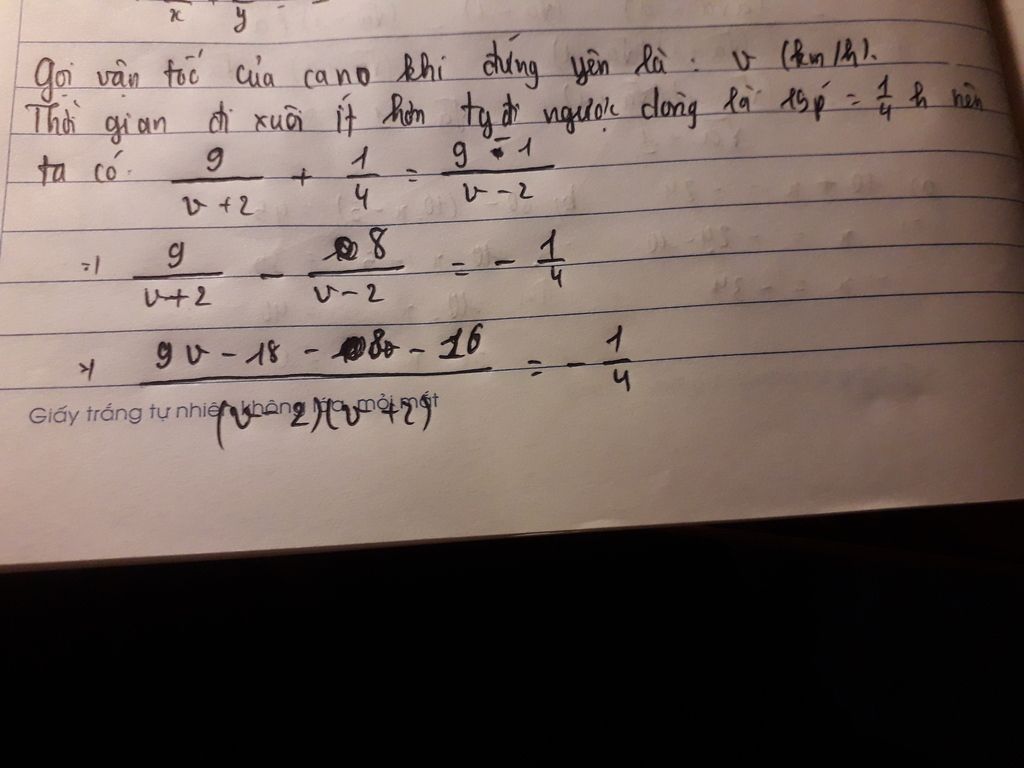 x y
Gọi vận tốc của cano khi đứng yên là : v (km/h).
Thời gian đi xuôi ít hơn tg đi ngược dòng là 15p = 1/4 h nên
ta có. 9/(v+2) + 1/4 = (9-1)/(v-2)
=) 9/(v+2) - 8/(v-2) = - 1/4
(9v - 18 - 8v - 16)/((v-2)(v+2)) = - 1/4
Giấy trắng tự nhiên không lóa, mỏi mắt